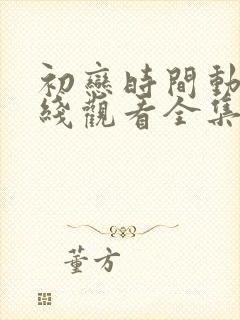 初戀時間動
綫觀看全集
董方